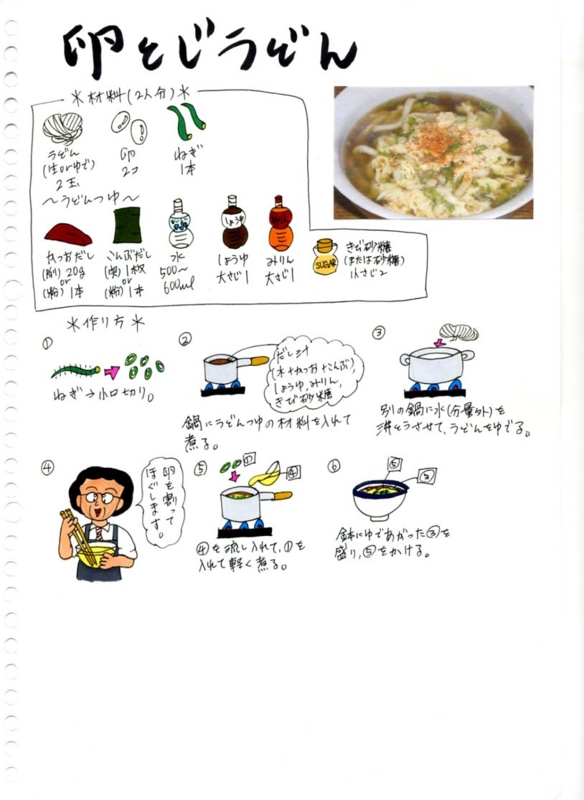 卵とじうどん
＊材料(2人分)＊
うどん
(生orゆで)
2玉
卵
2コ
ねぎ
1本
〜うどんつゆ〜
かつおだし
(削)20g
or
(粉)1本
こんぶだし
(奥)1枚
or
(粉)1本
水
500〜
600ml
しょうゆ
しょうゆ
大さじ1
みりん
みりん
大さじ1
SUGAR
きび砂糖
(または砂糖)
小さじ2
＊作り方＊
①
ねぎ→小口切り。
②
だし汁
(水+かつお+こんぶ)、
しょうゆ、みりん、
きび砂糖
鍋にうどんつゆの材料を入れて
煮る。
③
別の鍋に水(分量外)を
沸とうさせて、うどんをゆでる。
④
卵を割って
ほぐします。
⑤
①
④
④を流し入れて、①を
入れて軽く煮る。
⑥
⑤
③
鉢にゆであがった③を
盛り、⑤をかける。